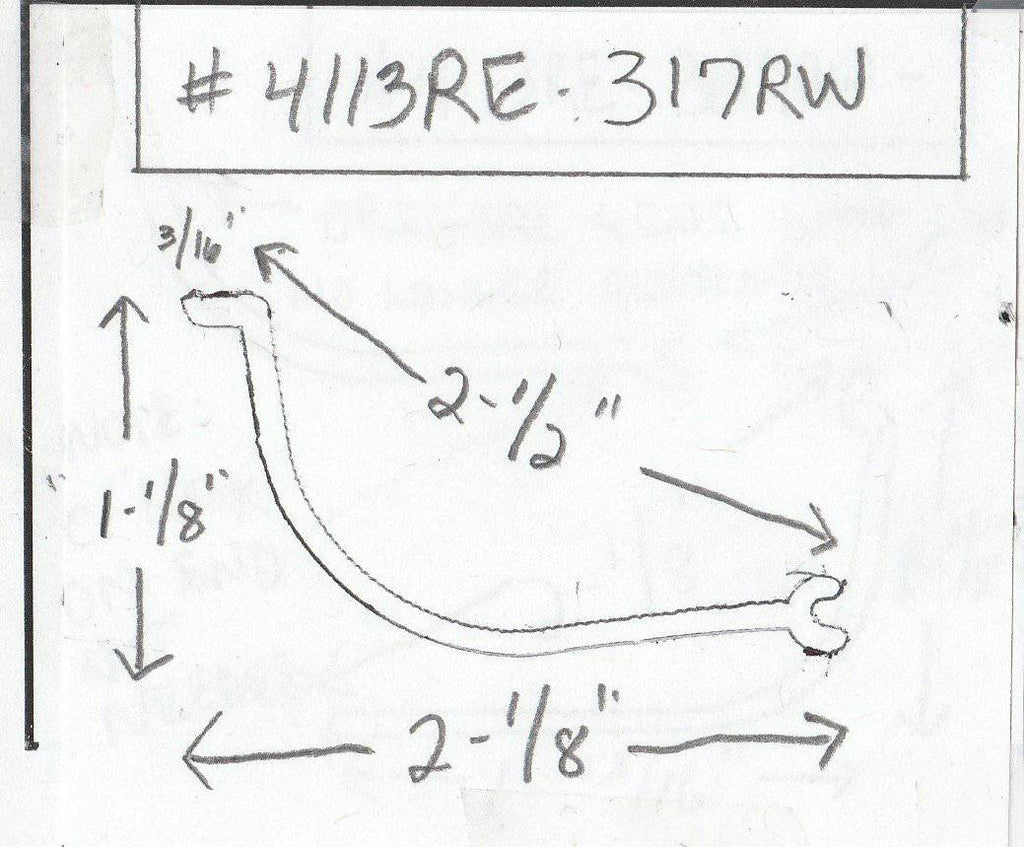 # 4113RE-317RW
3/16"
2-1/2"
1-1/8"
2-1/8"